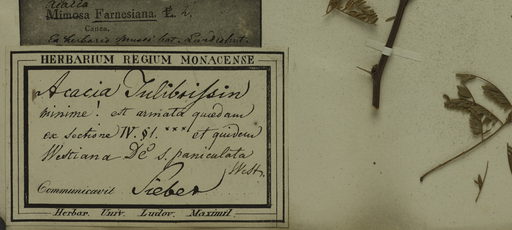 Acacia
Mimosa Farnesiana. L. 2.
Canea.
Ex herbario musei bot. Landishut.
HERBARIUM REGIUM MONACENSE
Acacia Julibrissin
minime! est armata quaedam
ex sectione IV. §1. *** et quidem
Westiana DeC s. paniculata
West.
Communicavit Sieber
Herbar. Univ. Ludov. Maximil